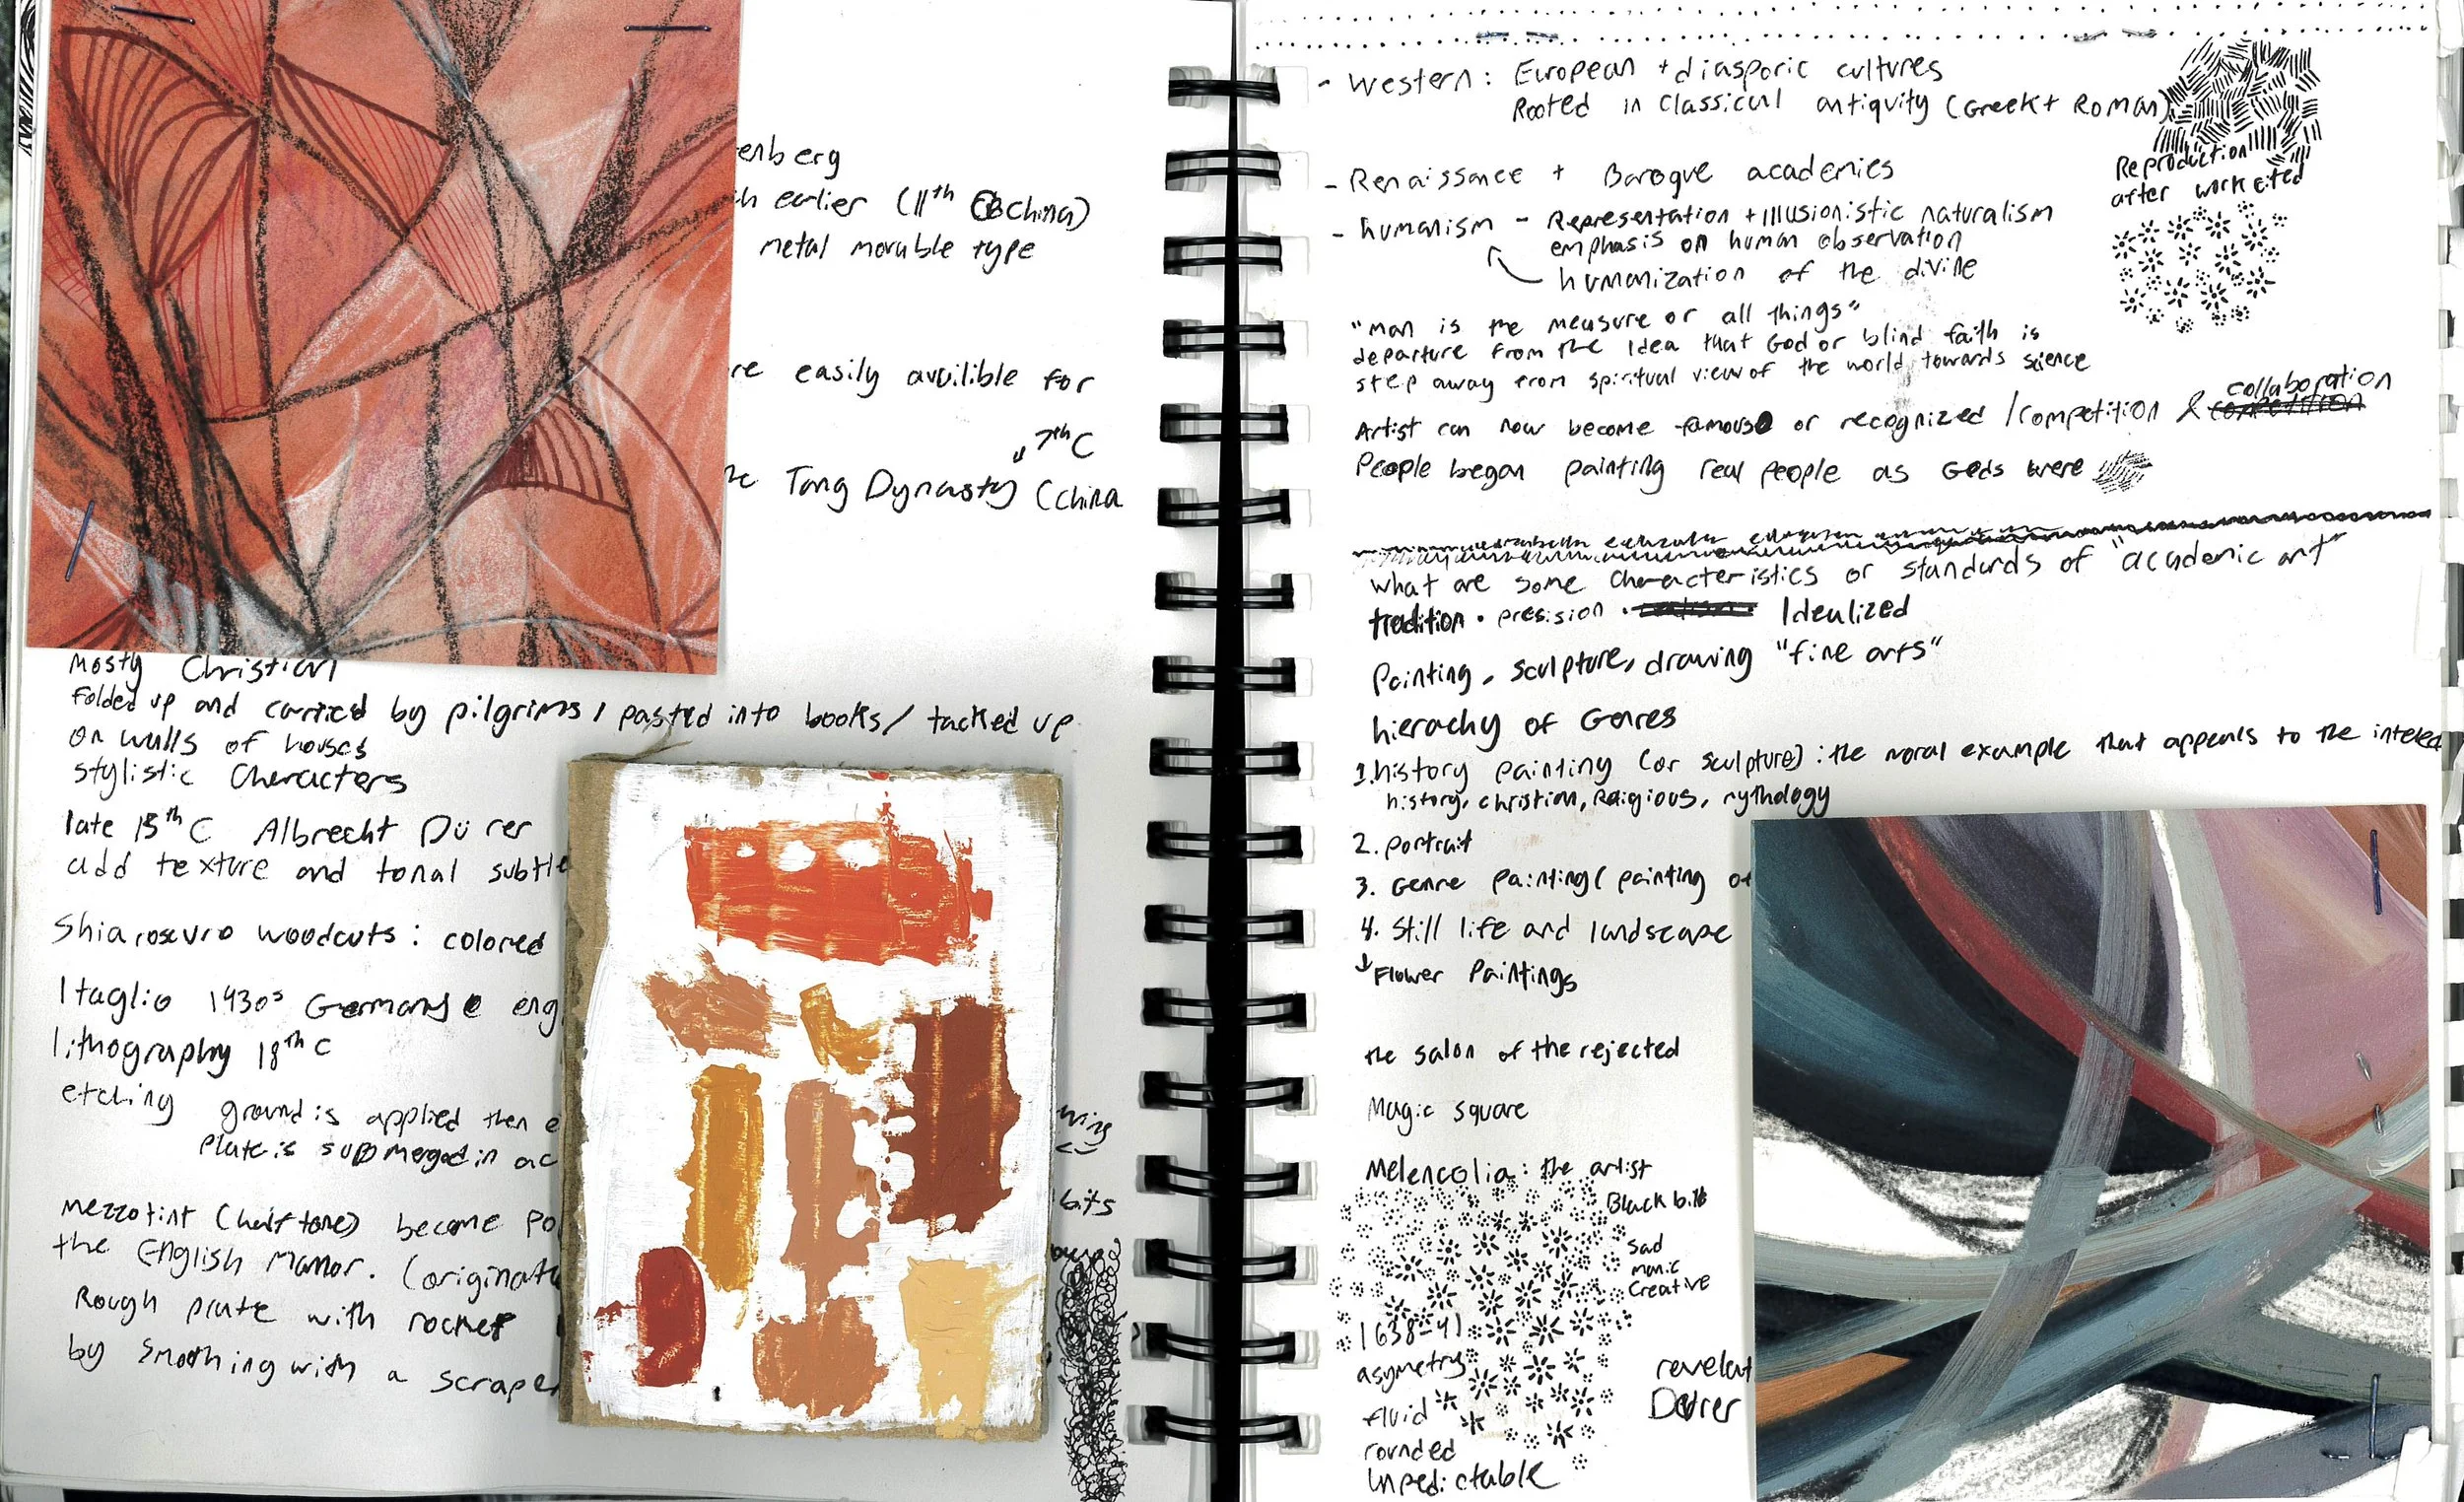 enberg
earlier (11th C China)
metal movable type
re easily availible for
7th C
Tang Dynasty (China
mosty Christian
Folded up and carried by pilgrims / pasted into books / tacked up
on walls of houses
stylistic Characters
late 15th C Albrecht Dürer
add texture and tonal subtle
Shiaroscuro woodcuts: colored
Itaglio 1430s Germany eng
lithography 18th C
etching ground is applied then e
Plate is submerged in ac
mezzotint (half tone) become po
the English Manor. (originat
Rough plate with rocker
by smothing with a scraper
wing
bits
- Western: European + diasporic cultures
Rooted in Classical antiquity (Greek + Roman)
Reproduction
after work cited
- Renaissance + Baroque academies
- humanism - Representation + Illusionistic naturalism
emphasis on human observation
humanization of the divine
"man is the measure or all things"
departure from the idea that God or blind faith is
step away from spiritual view of the world towards science
collaboration
Artist can now become famous or recognized / competition & competition
People began painting real people as Gods were
what are some characteristics or standards of "academic art"
tradition · presision · Idealized
Painting, sculpture, drawing "fine arts"
hierachy of Genres
1. history painting (or sculpture): the moral example that appeals to the intelec
history, christian, Religious, mythology
2. portrait
3. Genre painting (painting of
4. Still life and landscape
↓ Flower Paintings
the salon of the rejected
Magic square
Melencolia: the artist
Black bile
Sad
manic
Creative
1638-41
asymetry
revelat
fluid
Dürer
rounded
Unpedictable